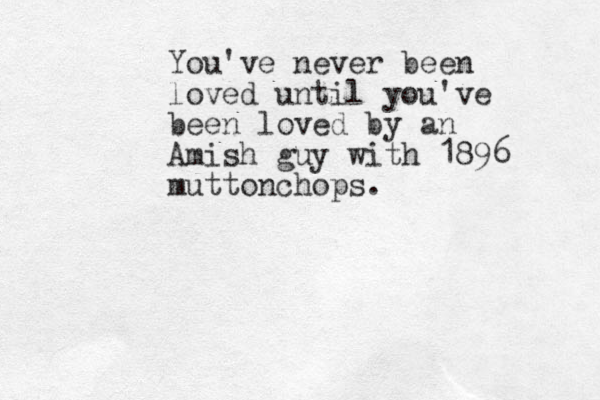 You've never been
loved until you've
been loved by an
Amish guy with 1896
muttonchops.